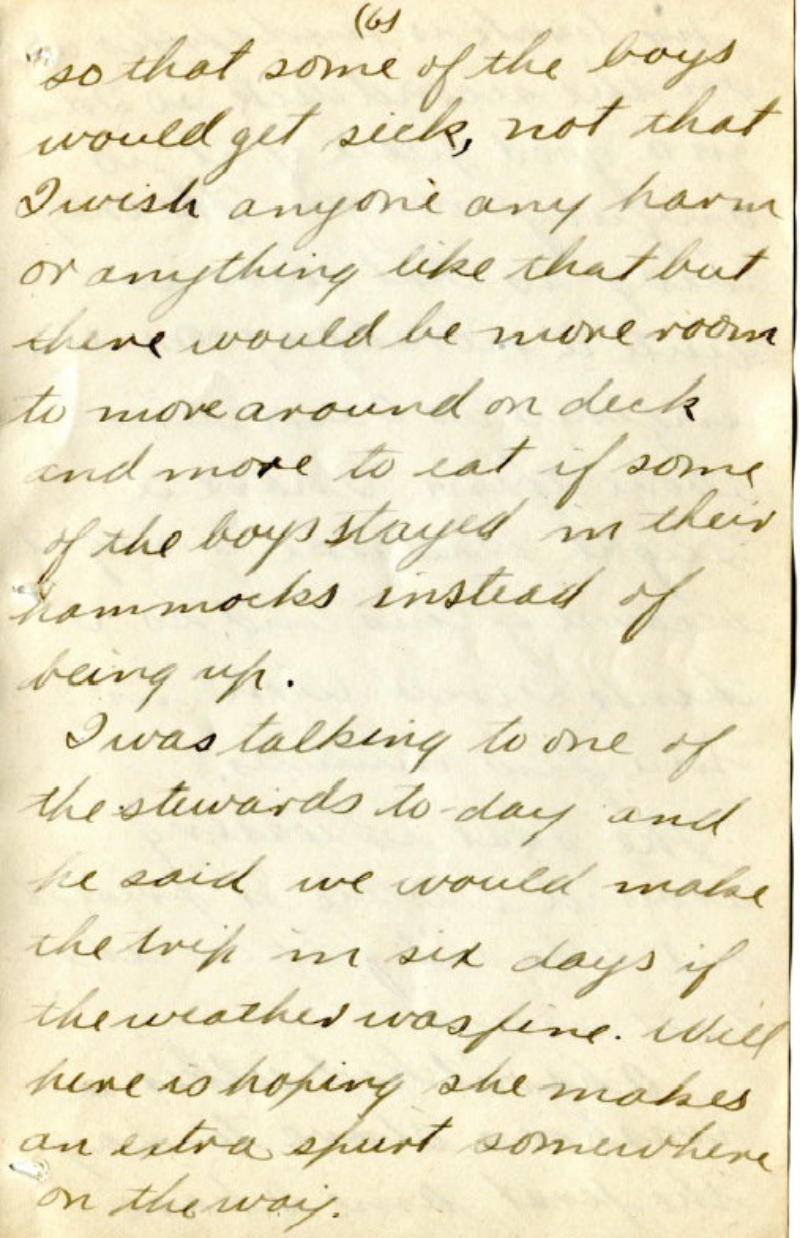 (6)
so that some of the boys
would get sick, not that
I wish anyone any harm
or anything like that but
there would be more room
to move around on deck
and more to eat if some
of the boys stayed in their
hammocks instead of
being up.
I was talking to one of
the stewards to-day and
he said we would make
the trip in six days if
the weather was fine. Well
here is hoping she makes
an extra spurt somewhere
on the way.